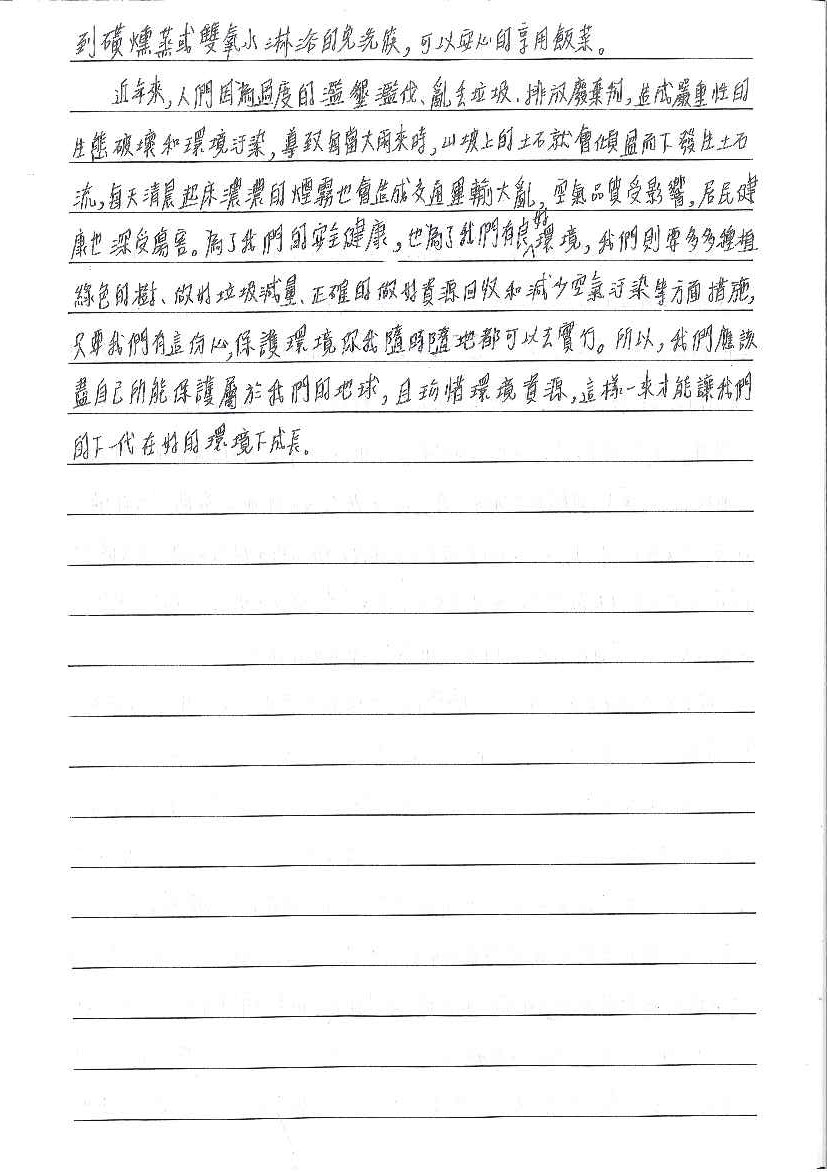 到磺燻蒸或雙氧水淋浴的免洗筷，可以安心的享用飯菜。
近年來，人們因為過度的濫墾濫伐、亂丟垃圾、排放廢棄物，造成嚴重性的
生態破壞和環境汙染，導致每當大雨來時，山坡上的土石就會傾盆而下發生土石
流，每天清晨起床濃濃的煙霧也會造成交通運輸大亂，空氣品質受影響，居民健
康也深受傷害。為了我們的安全健康，也為了我們有良好環境，我們則要多多種植
綠色的樹、做好垃圾減量、正確的做好資源回收和減少空氣汙染等方面措施，
只要我們有這份心，保護環境你我隨時隨地都可以去實行。所以，我們應該
盡自己所能保護屬於我們的地球，且珍惜環境資源，這樣一來才能讓我們
的下一代在好的環境下成長。